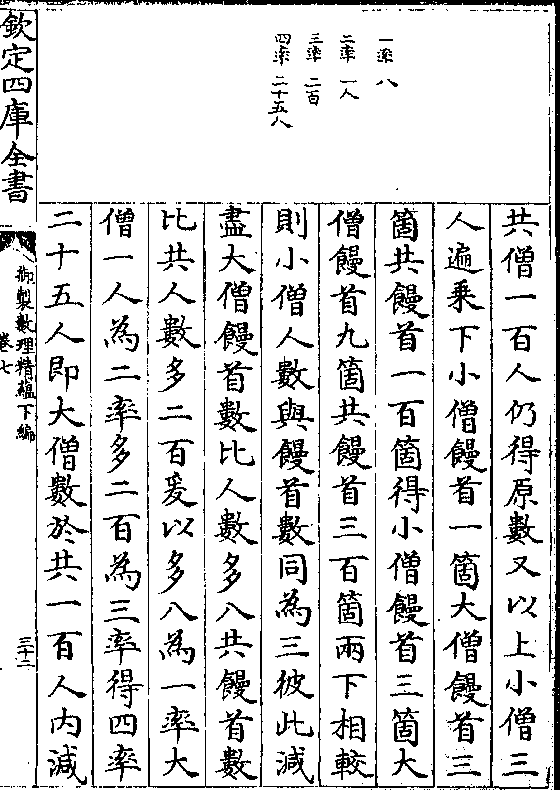 一率 八
二率 一人
三率 二百
四率 二十五人
共僧一百人仍得原數又以上小僧三
人遍乗下小僧饅首一箇大僧饅首三
箇共饅首一百箇得小僧饅首三箇大
僧饅首九箇共饅首三百箇兩下相較
則小僧人數與饅首數同為三彼此減
盡大僧饅首數比人數多八共饅首數
比共人數多二百爰以多八為一率大
僧一人為二率多二百為三率得四率
二十五人即大僧數於共一百人内減
欽定四庫全書
御製數理精蘊下編
卷七
三十二